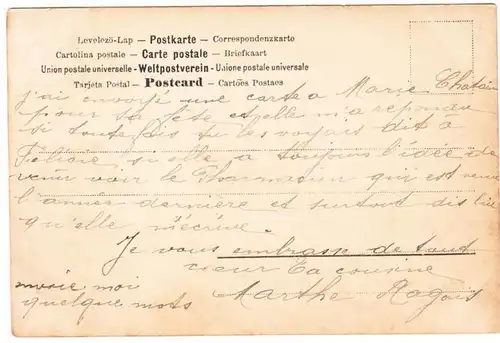 Levelezö-Lap — Postkarte — Correspondenzkarte
Cartolina postale — Carte postale — Briefkaart
Union postale universelle - Weltpostverein - Unione postale universale
Tarjeta Postal — Postcard — Cartões Postaes
j'ai envoyé une carte a Marie
pour sa fête et elle m'a
si toute fois tu les voyais dit à
Félicie si elle a toujours l'idée de
venir voir le Pharmacien qui est venu
l'année dernière et surtout dis lui
qu'elle m'écrive.
Je vous embrasse de tout
coeur Ta cousine
Marthe
envoie moi
quelque mots